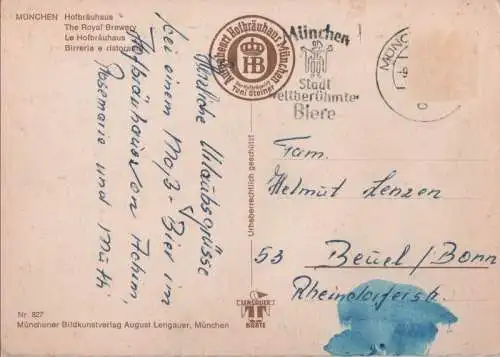 MÜNCHEN Hofbräuhaus
The Royal Brewery
Le Hofbräuhaus
Birreria e ristora
Ausschank Hofbräuhaus München
HB
Toni Steiner
München
Stadt
weltberühmter
Biere
MÜNC
Herzliche Urlaubsgrüsse
bei einem Maß-Bier im
Hofbräuhaus von Achim,
Rosemarie und Mutti
Urheberrechtlich geschützt
Fam.
Helmut Lenzen
53 Beuel/Bonn
Rheindorferstr.
LENGAUER
KARTE
Nr. 827
Münchener Bildkunstverlag August Lengauer, München